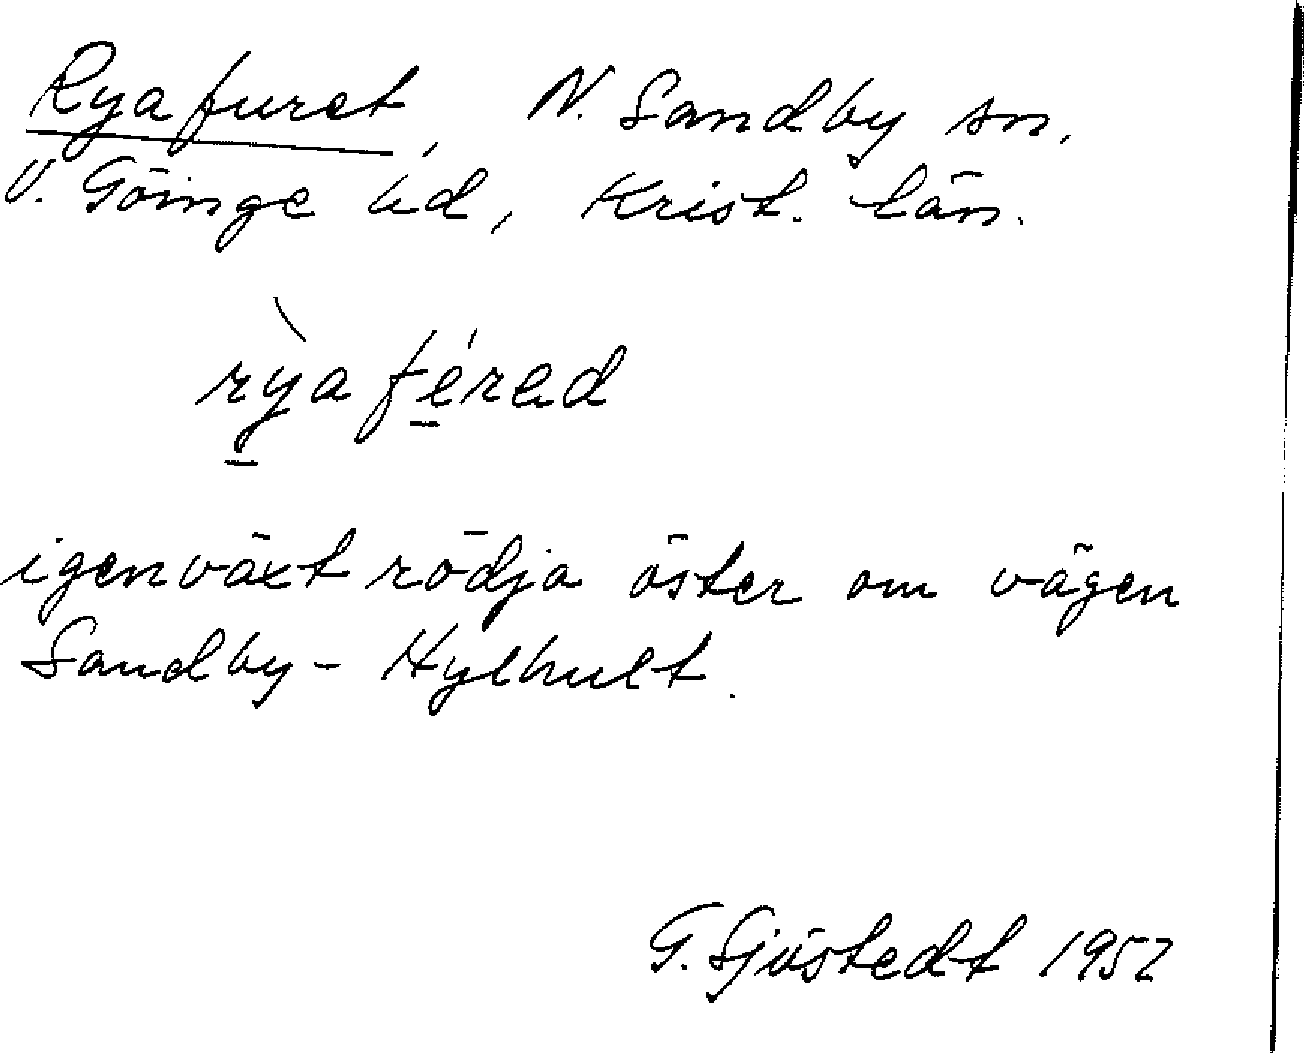 Ryafuret, N. Sandby sn,
V. Göinge hd, Krist. län.
rỳaférad
igenväxt rödja öster om vägen
Sandby - Hylhult.
G. Sjöstedt 1952